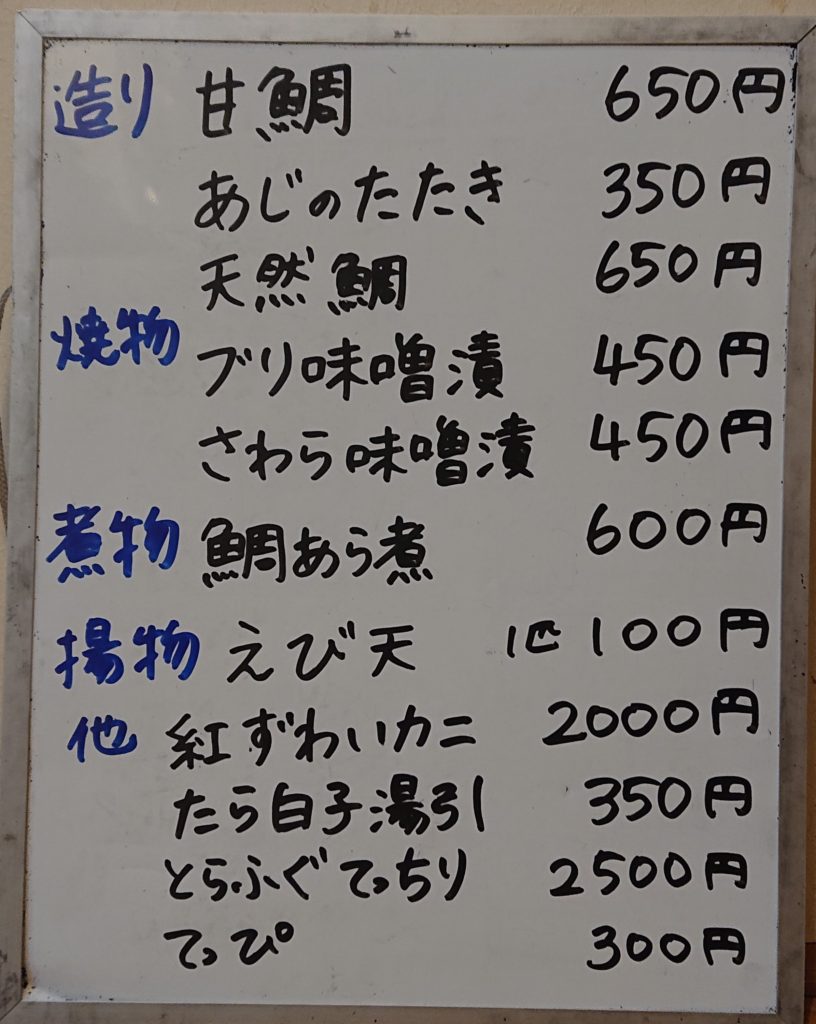 造り 甘鯛 650円
あじのたたき 350円
天然鯛 650円
焼物 ブリ味噌漬 450円
さわら味噌漬 450円
煮物 鯛あら煮 600円
揚物 えび天 1匹 100円
他 紅ずわいカニ 2000円
たら白子湯引 350円
とらふぐてっちり 2500円
てっぴ 300円